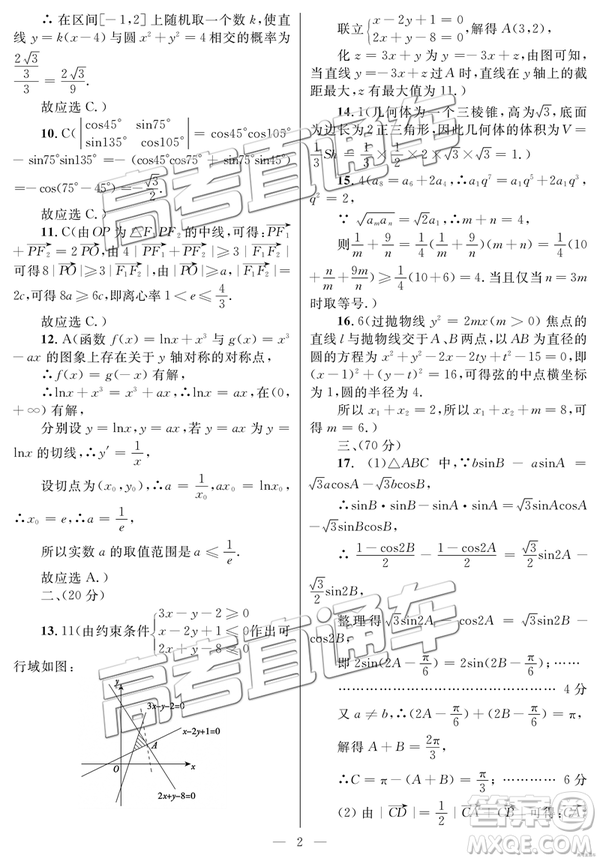 ∴ 在区间[-1,2]上随机取一个数 k,使直
线 y=k(x-4) 与圆 x²+y²=4 相交的概率为
(2√3/3)/3=2√3/9.
故应选 C.)
10. C(|cos45° sin75°; sin135° cos105°|=cos45°cos105°
-sin75°sin135°=-cos45°cos75°+sin75°sin45°)
=-cos(75°-45°)=-√3/2.
故应选 C.)
11. C(由 OP 为 △F₁PF₂ 的中线,可得:PF₁
+PF₂=2PO,由 4|PF₁+PF₂|≥3|F₁F₂|
可得8|PO|≥3|F₁F₂|,
2c,可得 8a≥6c,即离心率 1<e≤4/3.
故应选 C.)
12. A(函数 f(x)=lnx+x³ 与 g(x)=x³
-ax 的图象上存在关于 y 轴对称的对称点,
∴f(x)=g(-x)有解,
∴lnx+x³=-x³+ax,∴lnx=ax,在(0,
+∞)有解,
分别设 y=lnx,y=ax,若 y=ax 为 y=
lnx 的切线,∴y′=1/x,
设切点为(x₀,y₀),∴a=1/x₀,ax₀=lnx₀,
∴x₀=e,∴a=1/e,
所以实数 a 的取值范围是 a≤1/e.
故应选 A.)
二、(20 分)
13. 11(由约束条件{3x-y-2≥0; x-2y+1≤0; 2x+y-8≤0作出可
行域如图:
y
3x-y-2=0
x-2y+1=0
A
O
x
2x+y-8=0
联立{ ,解得 A(3,2),
化 z=3x+y 为 y=-3x+z,由图可知,当
直线 y=-3x+z 过 A 时,直线在 y 轴上的截
距最大,z 有最大值为 11.)
14. 1(几何体为一个三棱锥,高为√3,底面
为边长为 2 正三角形,因此几何体的体积为 V=
1/3Sh=1/3×1/2×2×√3×√3=1.)
15. 4(a₈=a₆+2a₄,∴a₁q⁷=a₁q⁵+2a₁q³,
q²=2,
∵ √(aₘaₙ)=√2a₁,∴m+n=4,
则1/m+9/n=1/4(m+n)(1/m+9/n)=1/4(10
+n/m+9m/n)≥1/4(10+6)=4.当且仅当 n=3m
时取等号.)
16. 6(过抛物线 y²=2mx(m>0) 焦点的
直线 l 与抛物线交于 A、B 两点,以 AB 为直径的
圆的方程为 x²+y²-2x-2ty+t²-15=0,即
(x-1)²+(y-t)²=16,可得弦的中点横坐标
为 1,圆的半径为 4.
所以 x₁+x₂=2,所以 x₁+x₂+m=8,可
得 m=6.)
三、(70 分)
17. (1)△ABC 中,∵bsinB-asinA=
√3acosA-√3bcosB,
∴sinB·sinB-sinA·sinA=√3sinAcosA
-√3sinBcosB,
∴ (1-cos2B)/2-(1-cos2A)/2=√3/2sin2A-
√3/2sin2B,
整理得√3sin2A-cos2A=√3sin2B
-cos2B,
即 2sin(2A-π/6)=2sin(2B-π/6),……
…………………………………… 4 分
又 a≠b,∴(2A-π/6)+(2B-π/6)=π,
解得 A+B=2π/3,
∴C=π-(A+B)=π/3. ……………… 6 分
(2) 由 |CD|=1/2|CA+CB|可得
— 2 —
高考直通车
答案圈
MXQE.COM